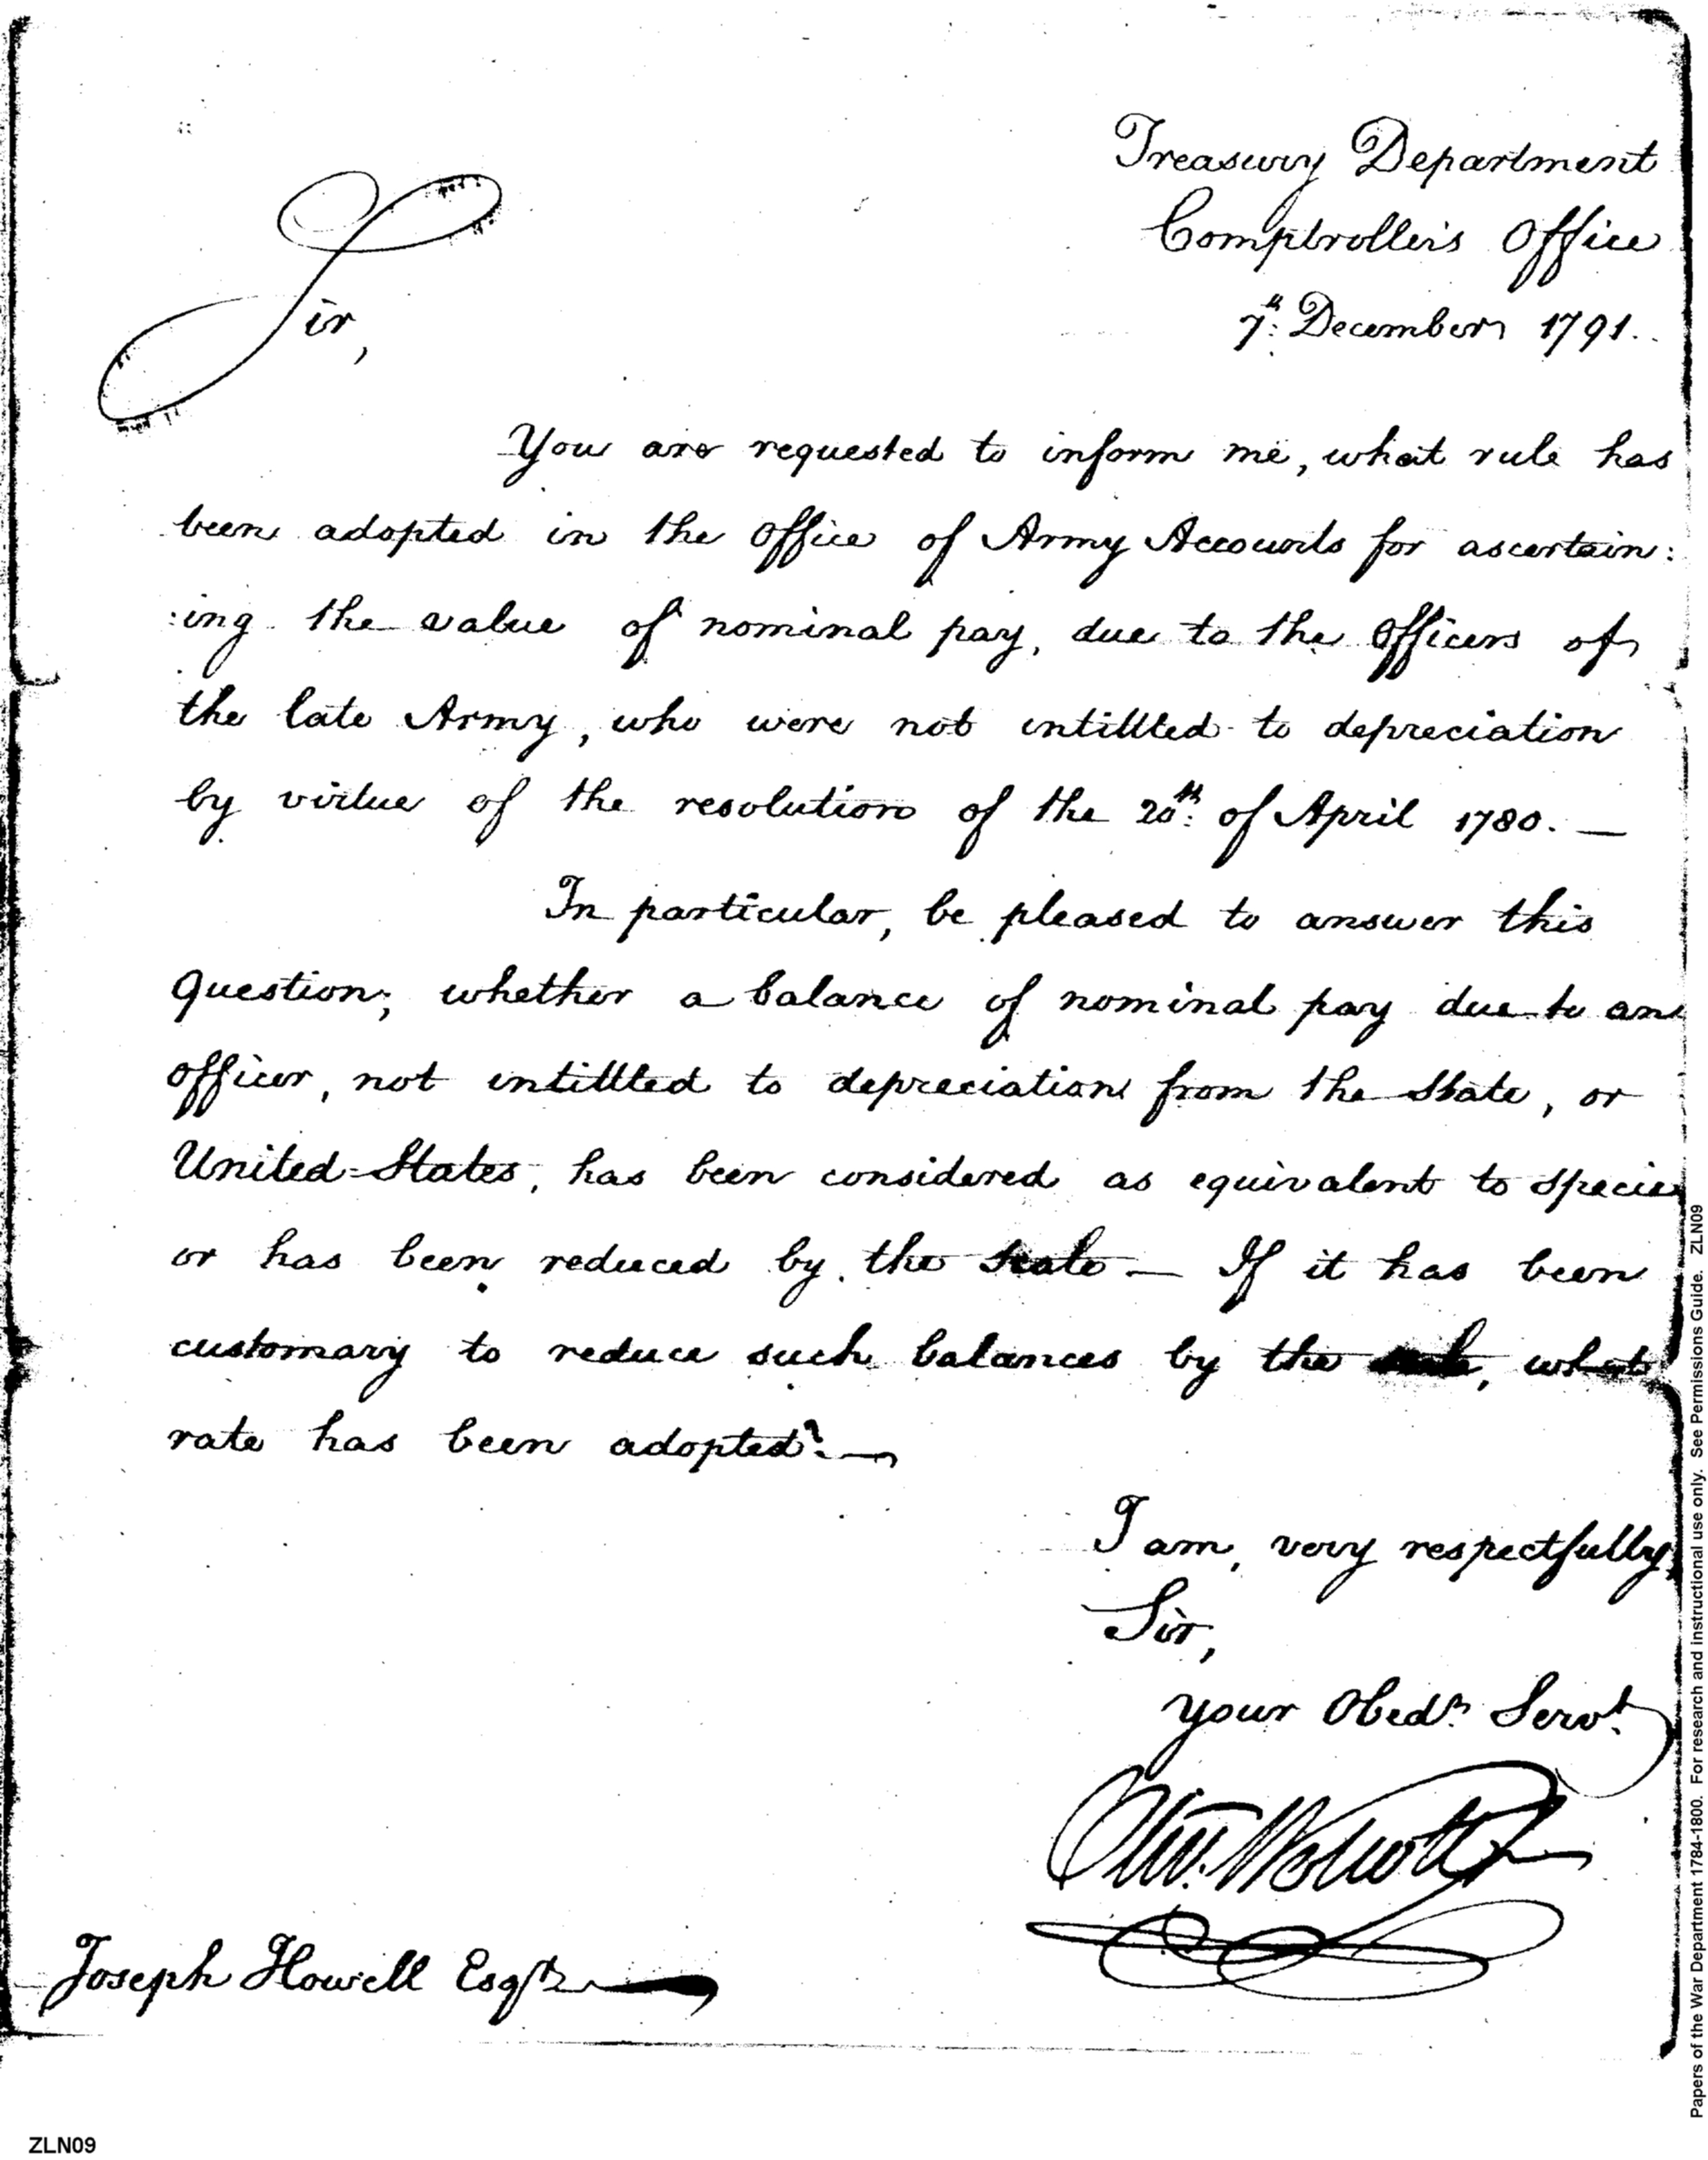 Treasury Department
Comptroller's Office
7th: December 1791.
Sir,
You are requested to inform me, what rule has
been adopted in the Office of Army Accounts for ascertain:
:ing the value of nominal pay, due to the Officers of
the late Army, who were not intittled to depreciation
by virtue of the resolution of the 20th: of April 1780. —
In particular, be pleased to answer this
question; whether a balance of nominal pay due to an
officer, not intittled to depreciation from the State, or
United States, has been considered as equivalent to specie
or has been reduced by the scale — If it has been
customary to reduce such balances by the scale, what
rate has been adopted? —
I am, very respectfully
Sir,
your Obedt. Servt.
Oliv. Wolcott Jr
Joseph Howell Esqr
ZLN09
Papers of the War Department 1784-1800. For research and instructional use only. See Permissions Guide. ZLN09